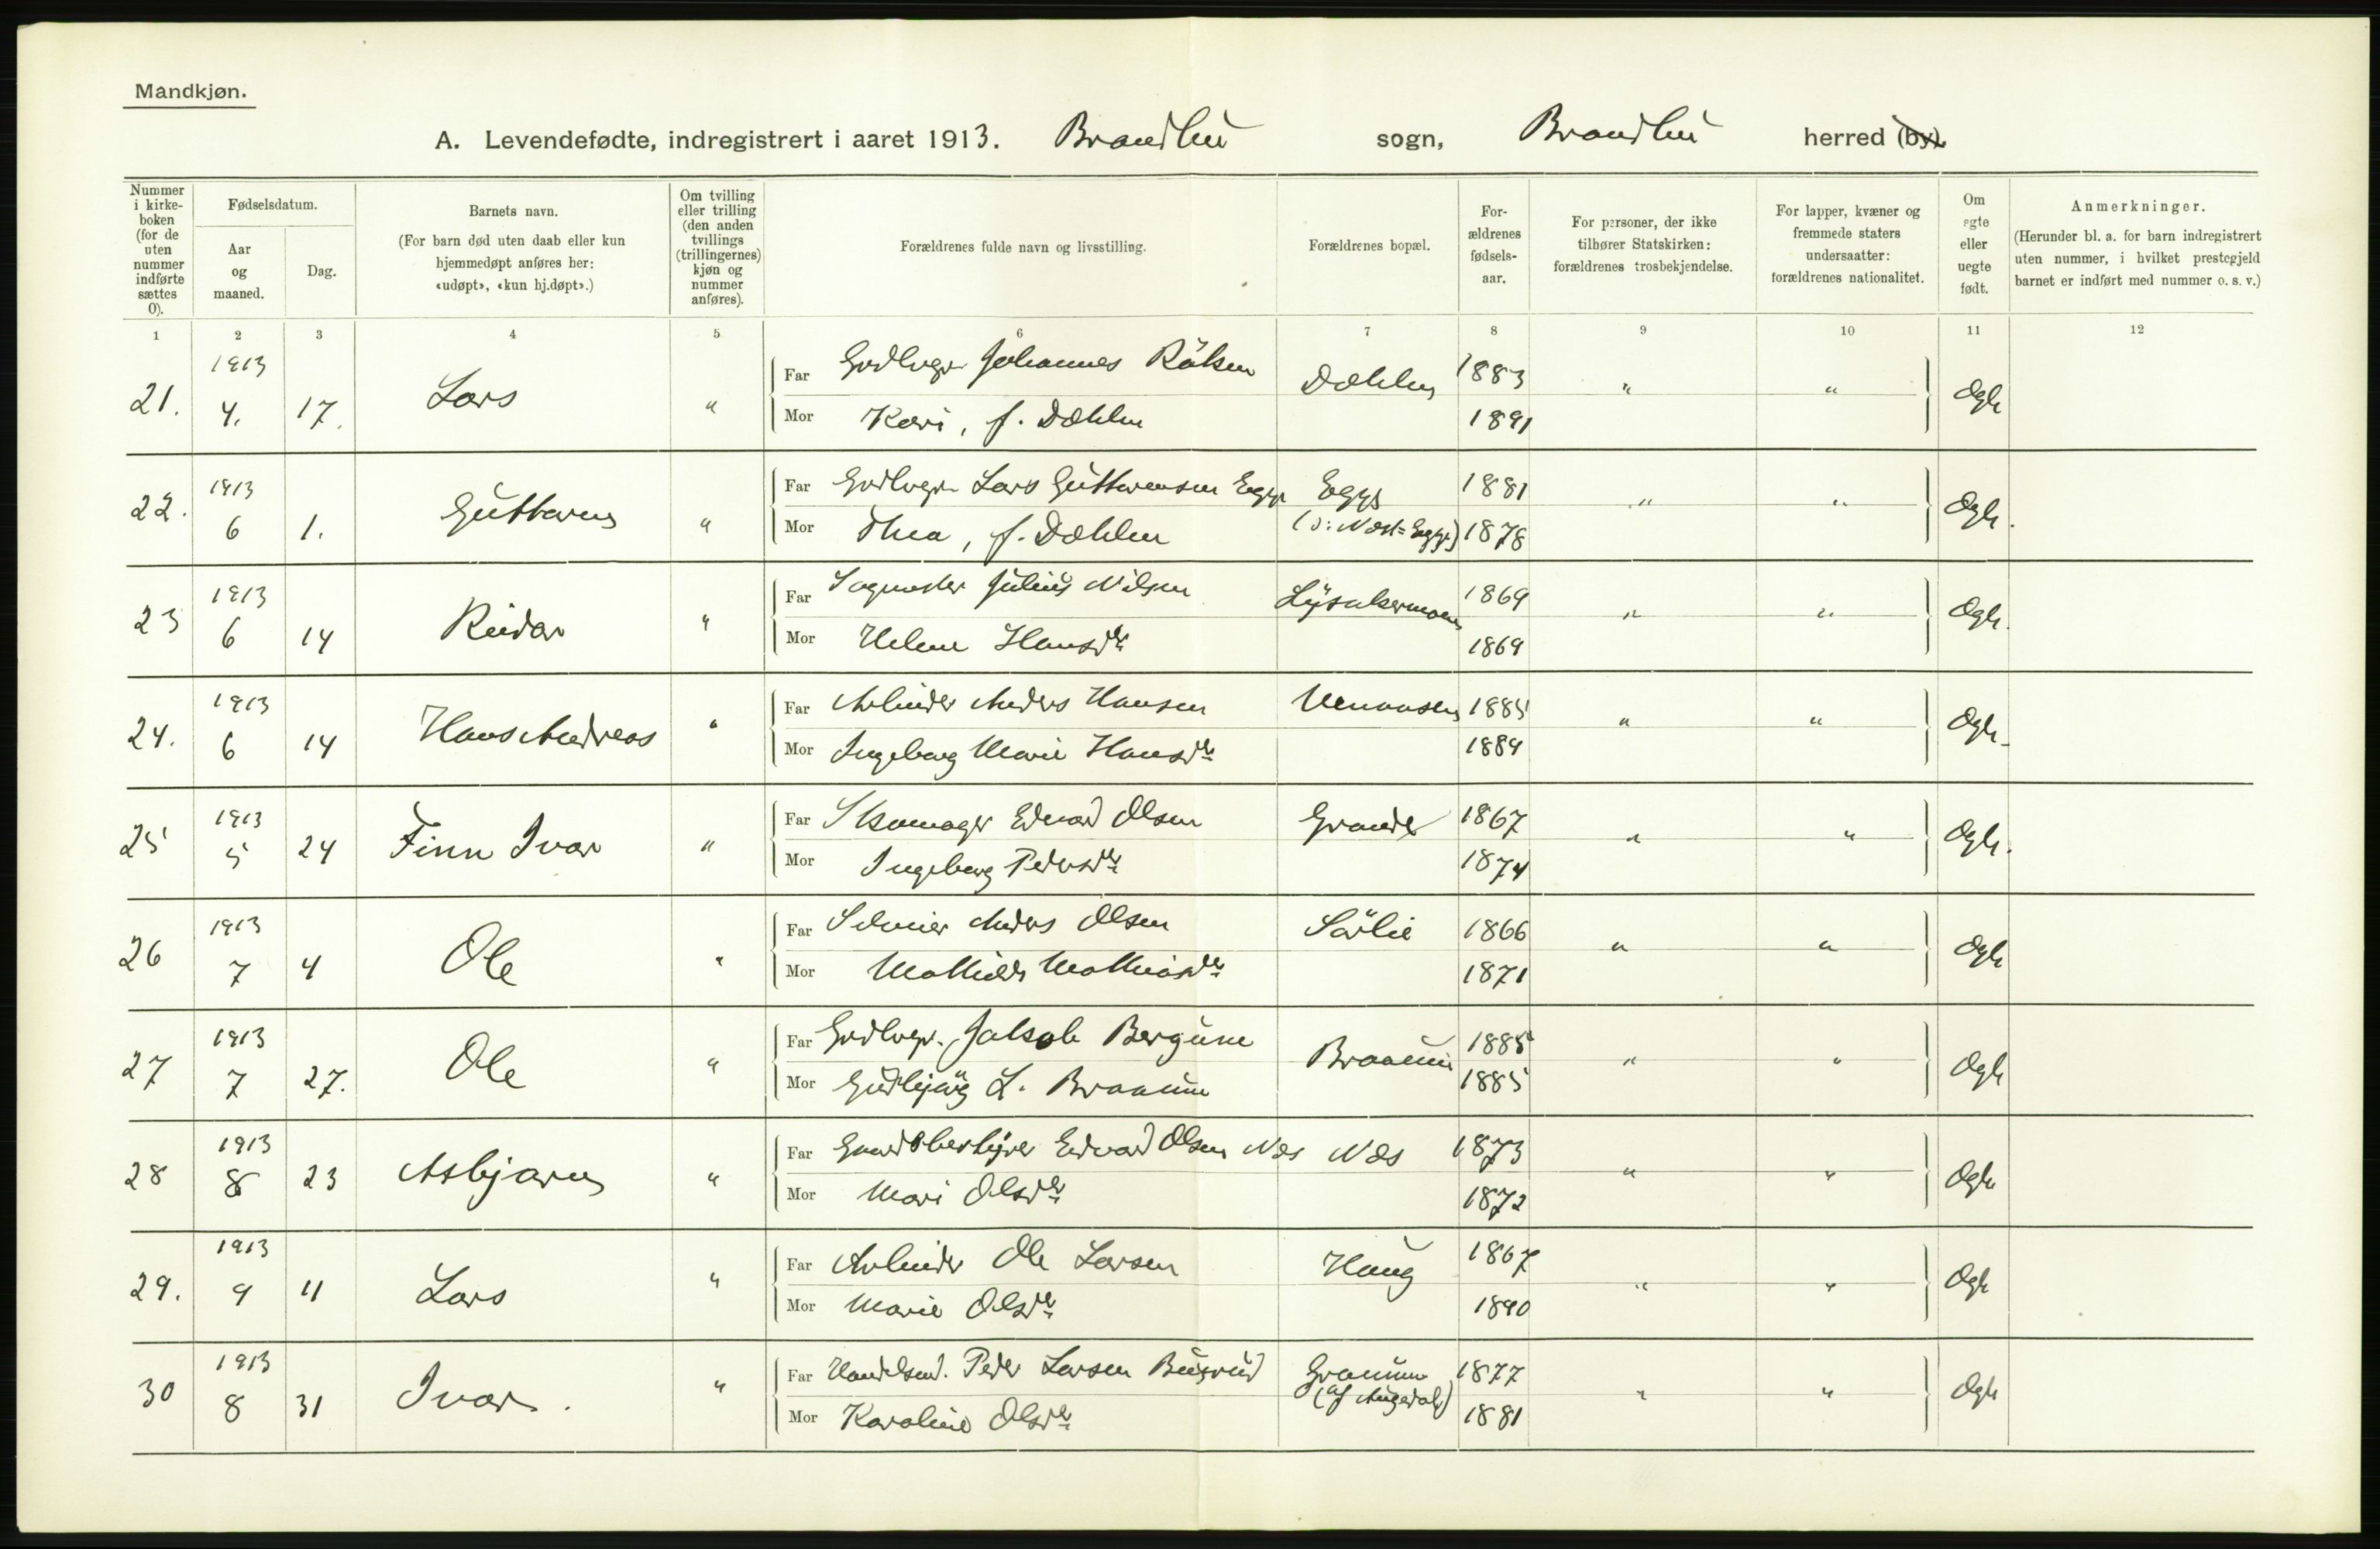 Mandkjøn.
A. Levendefødte, indregistrert i aaret 1913. Brandbu sogn, Brandbu herred (by).
Nummer i kirke-boken (for de uten nummer indførte sættes 0).
Fødselsdatum.
Aar og maaned.
Dag.
Barnets navn.
(For barn død uten daab eller kun hjemmedøpt anføres her: «udøpt», «kun hj.døpt».)
Om tvilling eller trilling (den anden tvillings (trillingernes) kjøn og nummer anføres).
Forældrenes fulde navn og livsstilling.
Forældrenes bopæl.
For-ældrenes fødsels-aar.
For personer, der ikke tilhører Statskirken: forældrenes trosbekjendelse.
For lapper, kvæner og fremmede staters undersaatter: forældrenes nationalitet.
Om egte eller uegte født.
Anmerkninger.
(Herunder bl. a. for barn indregistrert uten nummer, i hvilket prestegjeld barnet er indført med nummer o. s. v.)
1 2 3 4 5 6 7 8 9 10 11 12
21. 1913 4. 17. Lars " Far Grdbrgr. Johannes Dæhlen 1883 " " Ægte
Mor Kari, f. Dæhlen 1891
22. 1913 6 1. Guttorm " Far Grdbrgr. Lars Guttormsen Egge Egge 1881 " " Ægte.
Mor Thea, f. Dæhlen (ɔ: Egge) 1878
23 1913 6 14 Reidar " Far Julius Nilsen Lysakermoen 1869 " " Ægte.
Mor Helene Hansdtr 1869
24. 1913 6 14 Hans Andreas " Far Arbeider Anders Hansen 1885 " " Ægte.
Mor Ingeborg Marie Hansdtr 1889
25 1913 5 24 Finn Ivar " Far Skomager Edvard Olsen 1867 " " Ægte.
Mor Ingeborg Pedersdtr 1874
26 1913 7 4 Ole " Far Anders Olsen Sörlie 1866 " " Ægte
Mor Mathilde Mathiasdtr 1871
27 1913 7 27. Ole " Far Grdbrgr. Jakob Bergum 1885 " " Ægte
Mor Gudbjörg L. 1885
28 1913 8 23 Asbjørn " Far Gaardsbestyrer Edvard Olsen Næs Næs 1873 " " Ægte
Mor Mari Olsdtr 1872
29. 1913 9 11 Lars " Far Arbeider Ole Larsen Haug 1867 " " Ægte
Mor Marie Olsdtr 1890
30 1913 8 31 Ivar. " Far Handelsm. Peder Larsen Granum 1877 " " Ægte
Mor Karoline Olsdtr (af Augedal) 1881